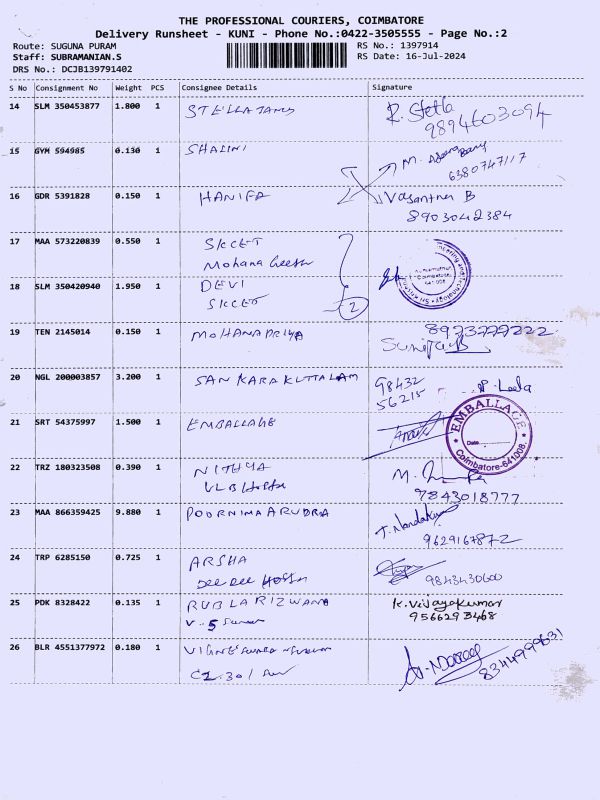 THE PROFESSIONAL COURIERS, COIMBATORE
Delivery Runsheet - KUNI - Phone No.:0422-3505555 - Page No.:2
Route: SUGUNA PURAM
RS No.: 1397914
Staff: SUBRAMANIAN.S
RS Date: 16-Jul-2024
DRS No.: DCJB139791402
S No Consignment No Weight PCS Consignee Details Signature
14 SLM 350453877 1.800 1 R. Stella
9894603094
15 GYM 594985 0.130 1 SHALINI M.
6380747117
16 GDR 5391828 0.150 1 HANIFA Vasantha B
8903042384
17 MAA 573220839 0.550 1 SKCET
Mohana
18 SLM 350420940 1.950 1 DEVI
SKCET 2
Coimbatore
641 008
19 TEN 2145014 0.150 1 MOHANAPRIYA
20 NGL 200003857 3.200 1 SANKARAKUTTALAM 98432
56215 Leela
21 SRT 54375997 1.500 1 EMBALLAGE
EMBALLAGE
Date
Coimbatore-641008.
22 TRZ 180323508 0.390 1 NITHYA M.
VLB
9843018777
23 MAA 866359425 9.880 1 POORNIMA ARUDRA T. Nandakumar
9629167872
24 TRP 6285150 0.725 1 ARSHA
9843430600
25 PDK 8328422 0.135 1 RUBLA RIZWANA K. Vijayakumar
V-5 9566293468
26 BLR 4551377972 0.180 1
8344999631
C2.301